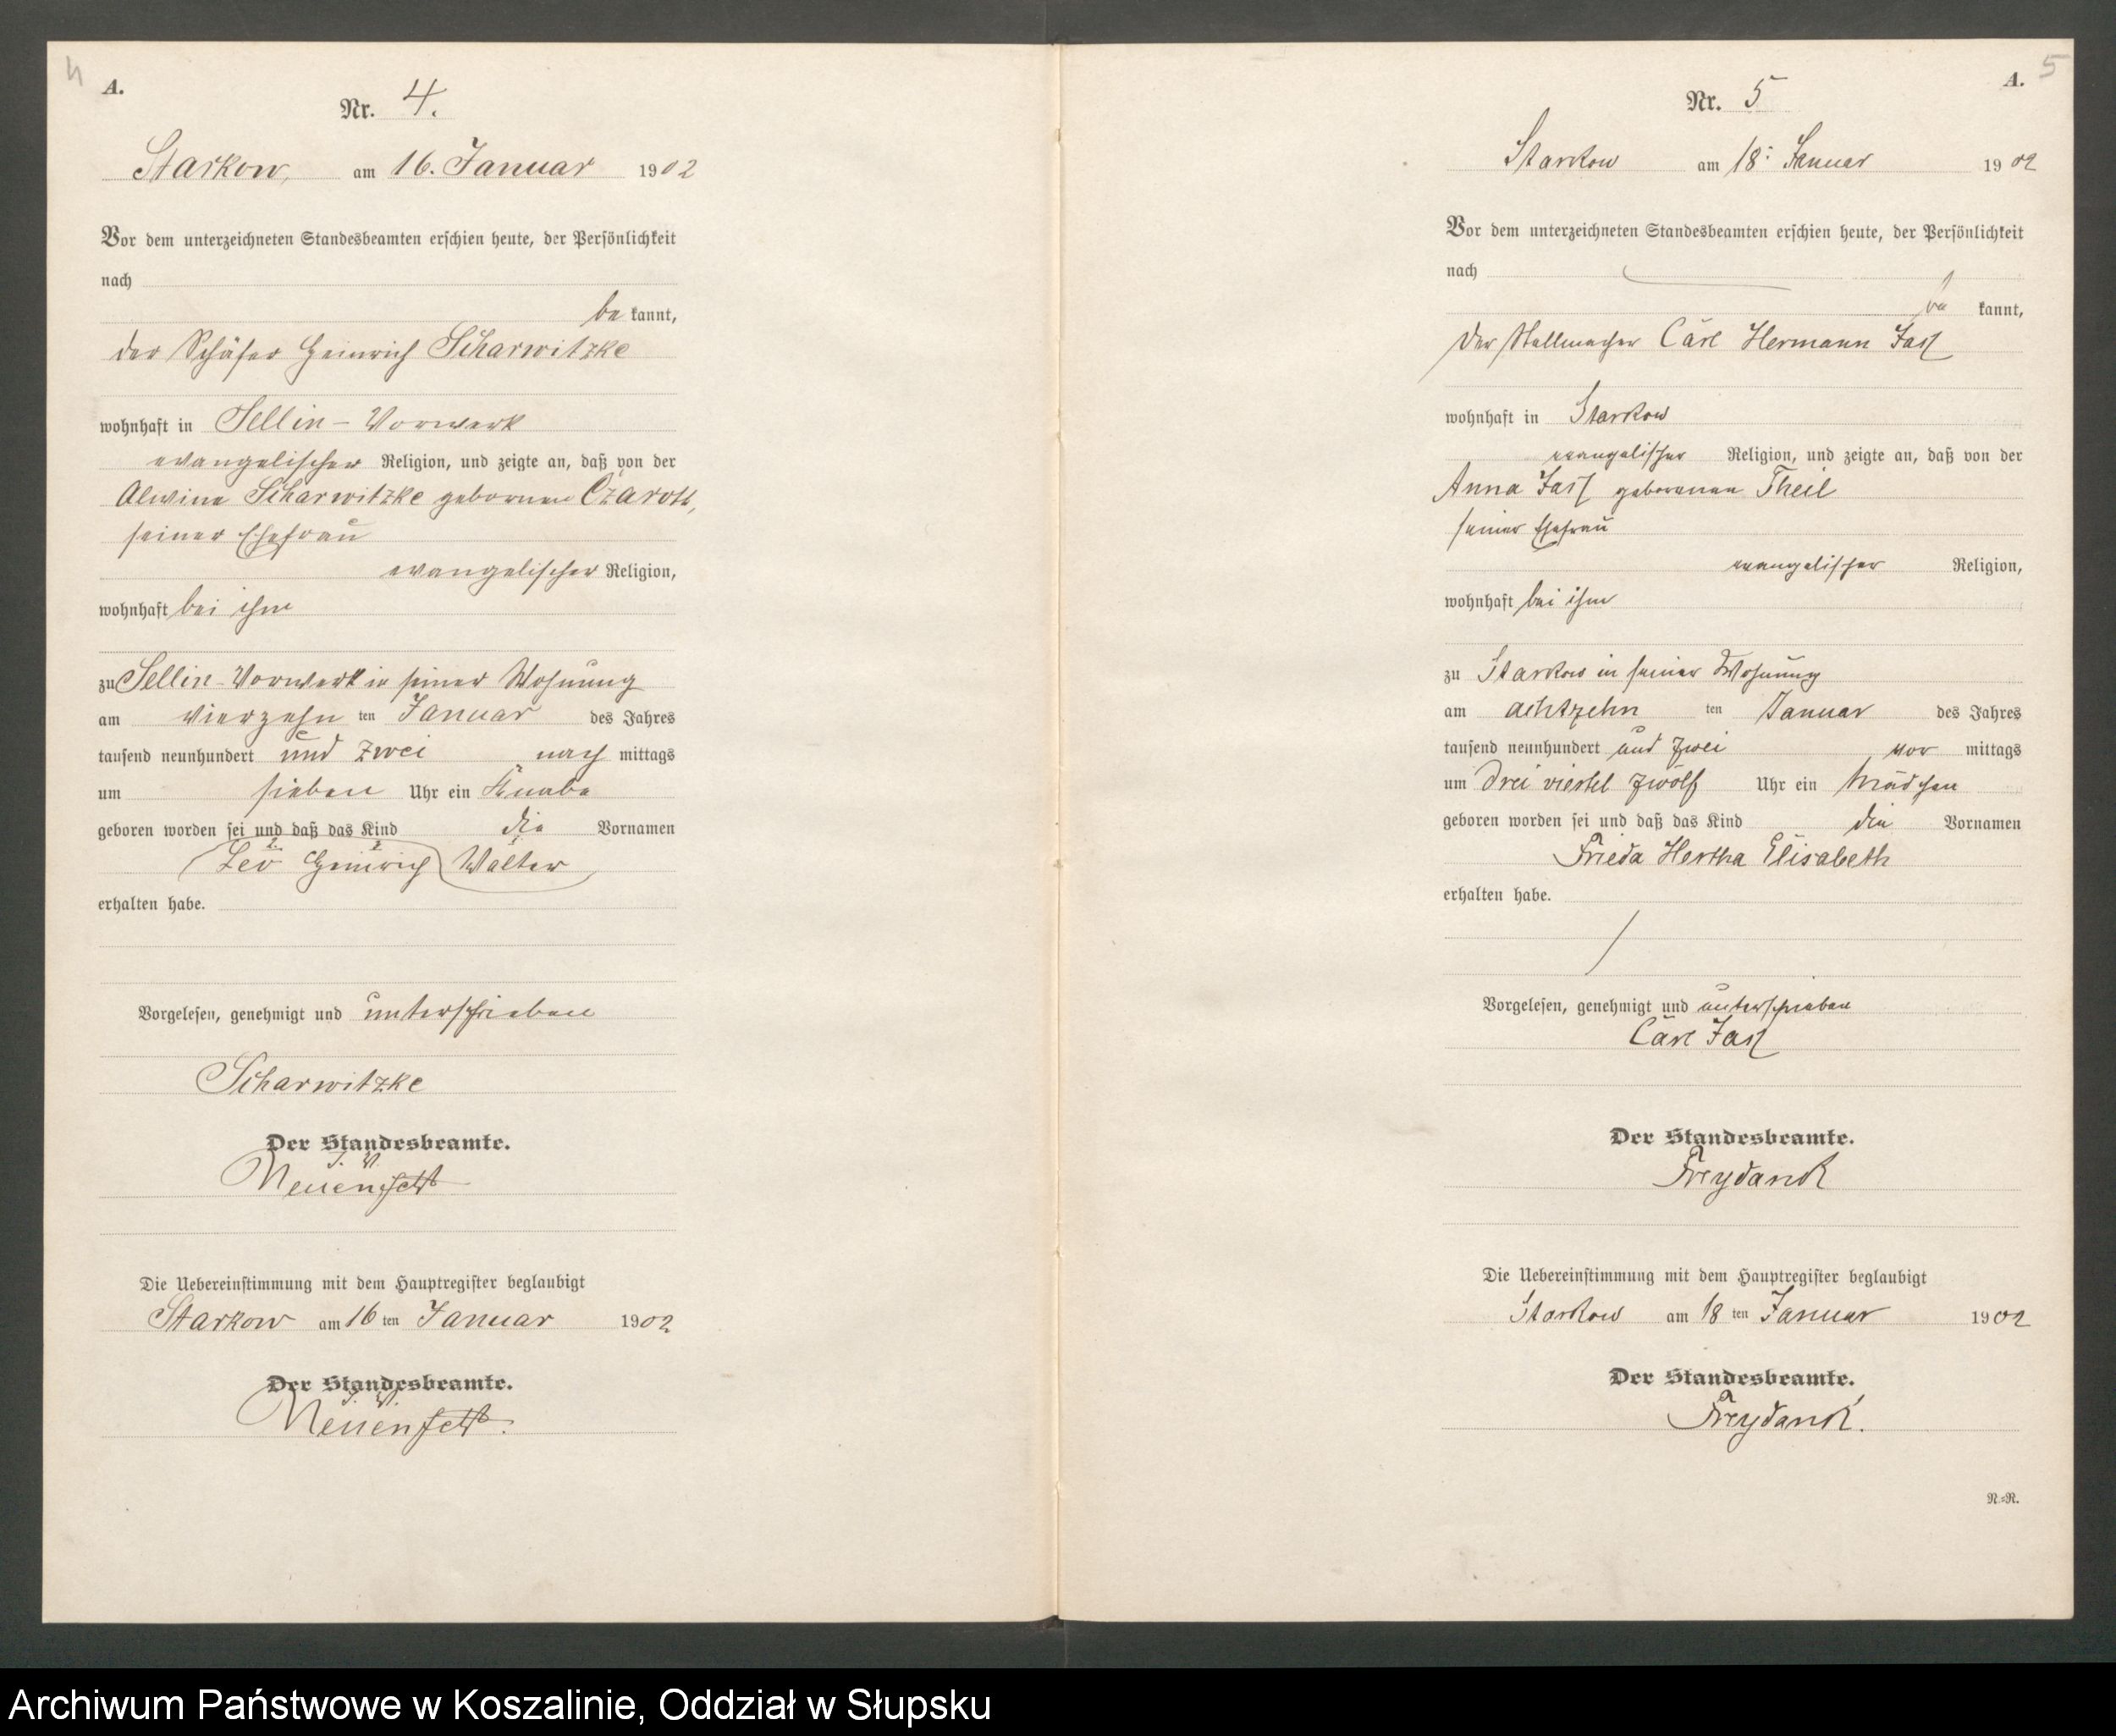 4
A.
Nr. 4.
Starkow, am 16. Januar 1902
Vor dem unterzeichneten Standesbeamten erschien heute, der Persönlichkeit
nach
be kannt,
der Schäfer Heinrich Scharwitzke
wohnhaft in Sellin-Vorwerk
evangelischer Religion, und zeigte an, daß von der
Alwine Scharwitzke gebornen
seiner Ehefrau
evangelischer Religion,
wohnhaft bei ihm
zu Sellin-Vorwerk in seiner Wohnung
am vierzehn ten Januar des Jahres
tausend neunhundert und zwei nach mittags
um sieben Uhr ein Knabe
geboren worden sei und daß das Kind die Vornamen
Leo Heinrich Walter
erhalten habe.
Vorgelesen, genehmigt und unterschrieben
Scharwitzke
Der Standesbeamte.
I. V.
Die Uebereinstimmung mit dem Hauptregister beglaubigt
Starkow am 16 ten Januar 1902
Der Standesbeamte.
I. V.
5
A.
Nr. 5
Starkow am 18. Januar 1902
Vor dem unterzeichneten Standesbeamten erschien heute, der Persönlichkeit
nach
be kannt,
der Stellmacher Carl Hermann Jass
wohnhaft in Starkow
evangelischer Religion, und zeigte an, daß von der
Anna Jass geborenen Theil
seiner Ehefrau
evangelischer Religion,
wohnhaft bei ihm
zu Starkow in seiner Wohnung
am achtzehn ten Januar des Jahres
tausend neunhundert und zwei vor mittags
um drei viertel zwölf Uhr ein Mädchen
geboren worden sei und daß das Kind die Vornamen
Frieda Hertha Elisabeth
erhalten habe.
Vorgelesen, genehmigt und unterschrieben
Carl Jass
Der Standesbeamte.
Freydanck
Die Uebereinstimmung mit dem Hauptregister beglaubigt
Starkow am 18 ten Januar 1902
Der Standesbeamte.
Freydanck.
N.=R.
Archiwum Państwowe w Koszalinie, Oddział w Słupsku